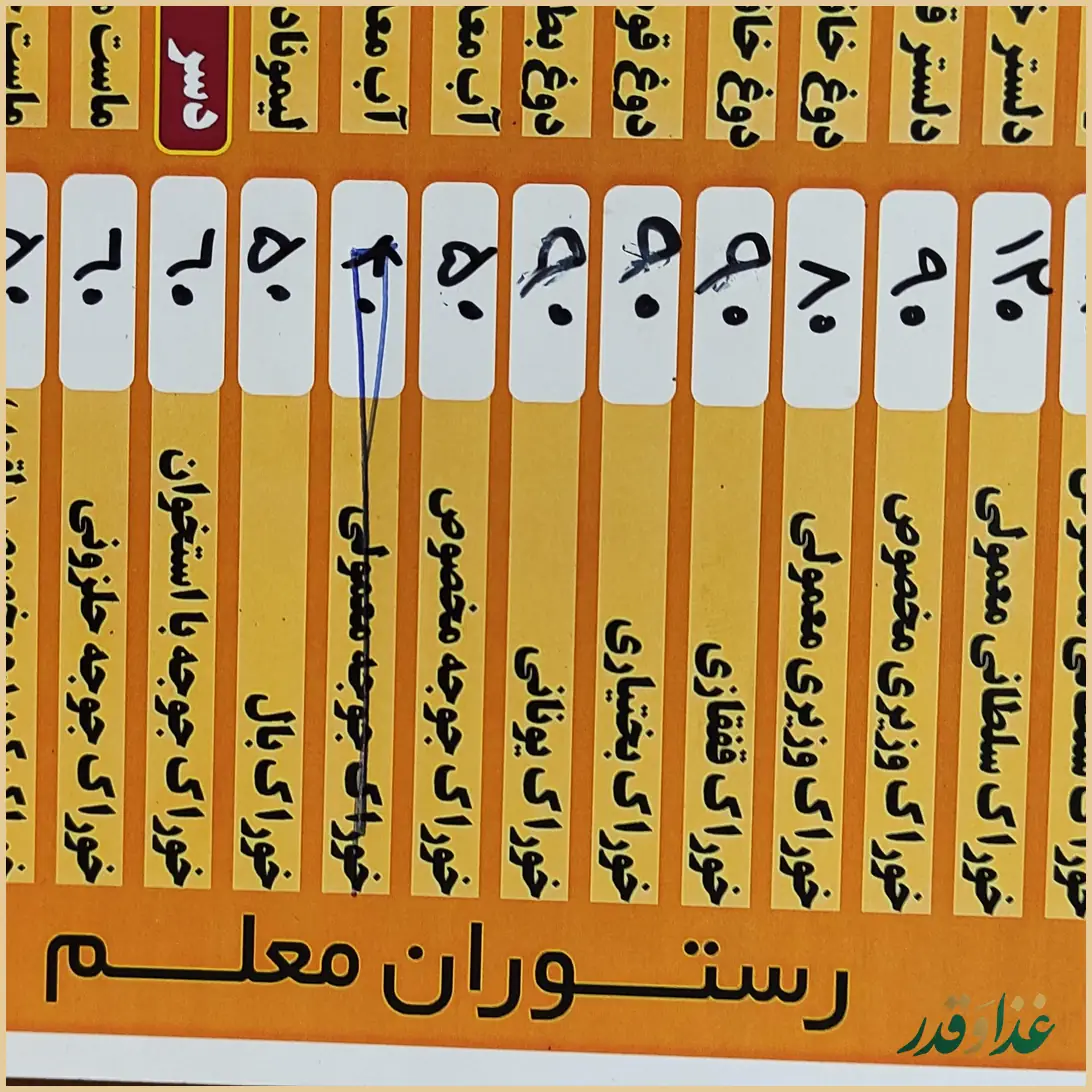 خوراک سلطانی معمولی ۱۲۰ دلستر
خوراک وزیری مخصوص ۹۰ دلستر
خوراک وزیری معمولی ۸۰ دوغ
خوراک قفقازی ۹۰ دوغ
خوراک بختیاری ۹۰ دوغ
خوراک یونانی ۹۰ دوغ
خوراک جوجه مخصوص ۵۰ آب
خوراک جوجه معمولی ۴۰ آب
خوراک بال ۵۰ لیموناد
خوراک جوجه با استخوان ۶۰ دسر
خوراک جوجه حلزونی ۶۰ ماست
ماست
رستوران معلم
غذا و قدر